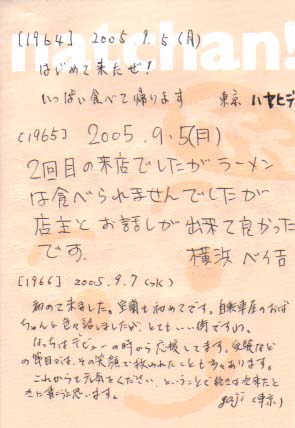 matchan!
[1964] 2005.9.5(月)
はじめて来たぜ!
いっぱい食べて帰ります 東京 ハヤヒデ
[1965] 2005.9.5(月)
2回目の来店でしたがラーメン
は食べられませんでしたが
店主とお話しが出来て良かった
です。 横浜 べイ吉
[1966] 2005.9.7(水)
初めて来ました。室蘭も初めてです。自転車屋のおば
ちゃんと色々話しましたが、とても…いい街ですね。
はっちはデビューの時から応援してます。受験など
の節目では、その笑顔で救われたことも多々あります。
これからも元気をください、ということで続きは次来たと
きに書こうと思います。 gaji (東京)